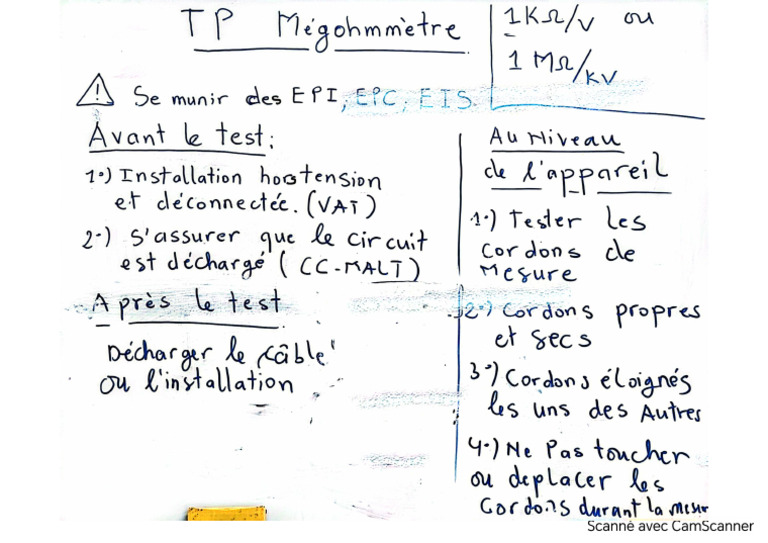 TP Mégohmmètre
1KΩ/V ou
1 MΩ/KV
Se munir des EPI, EPC, EIS.
Avant le test:
1°) Installation hors tension
et déconnectée. (VAT)
2°) S'assurer que le circuit
est déchargé (CC-MALT)
Après le test
Décharger le câble
ou l'installation
Au Niveau
de l'appareil
1°) Tester les
Cordons de
Mesure
2°) Cordons propres
et Secs
3°) Cordons éloignés
les uns des Autres
4°) Ne Pas toucher
ou deplacer les
Cordons durant la mesur
Scanné avec CamScanner